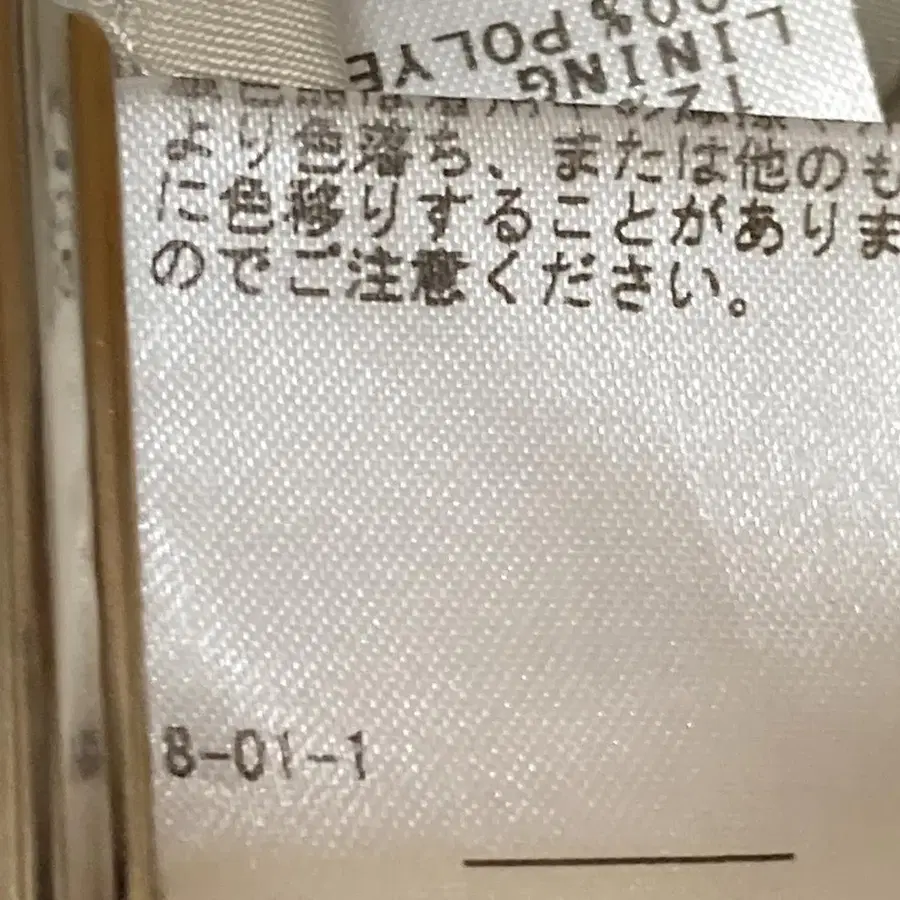 LINING
00% POLYE
より色落ち、または他のも
に色移りすることがありま
のでご注意ください。
8-01-1